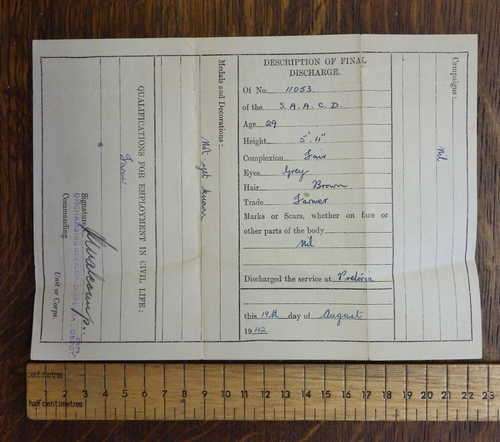 DESCRIPTION OF FINAL
DISCHARGE.
Of No. 11053
of the S. A. A. C. D.
Age 29
Height 5' 11"
Complexion Fair
Eyes Grey
Hair Brown
Trade Farmer
Marks or Scars, whether on face or
other parts of the body
Nil
Discharged the service at Pretoria
this 19th day of August
1942
Campaigns:
Nil
Medals and Decorations:
Not yet known
QUALIFICATIONS FOR EMPLOYMENT IN CIVIL LIFE:
Signature
Commanding
Unit or Corps.
cent metres
2 3 4 5 6 7 8 9 10 11 12 13 14 15 16 17 18 19 20 21 22 23
half centimetres